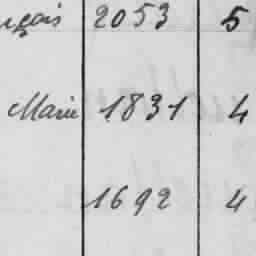 nçois 2053 5
Marie 1831 4
1692 4